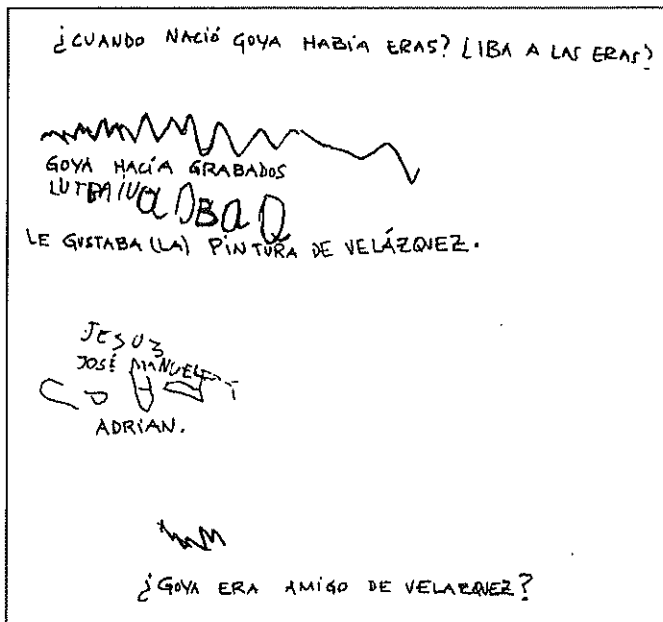 ¿CUANDO NACIÓ GOYA HABÍA ERAS? ¿IBA A LAS ERAS?
GOYA HACÍA GRABADOS
LE GUSTABA (LA) PINTURA DE VELÁZQUEZ.
JESUS
JOSÉ MANUEL
ADRIAN.
¿GOYA ERA AMIGO DE VELAZQUEZ?